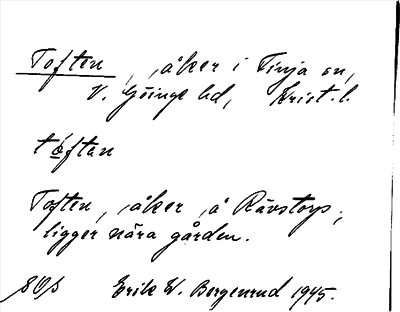 Toften, åker i Finja sn,
V. Göinge hd, Krist. l.
tɷftan
Toften, åker å Rävstorp;
ligger nära gården.
Erik W. Bergenrud 1945.